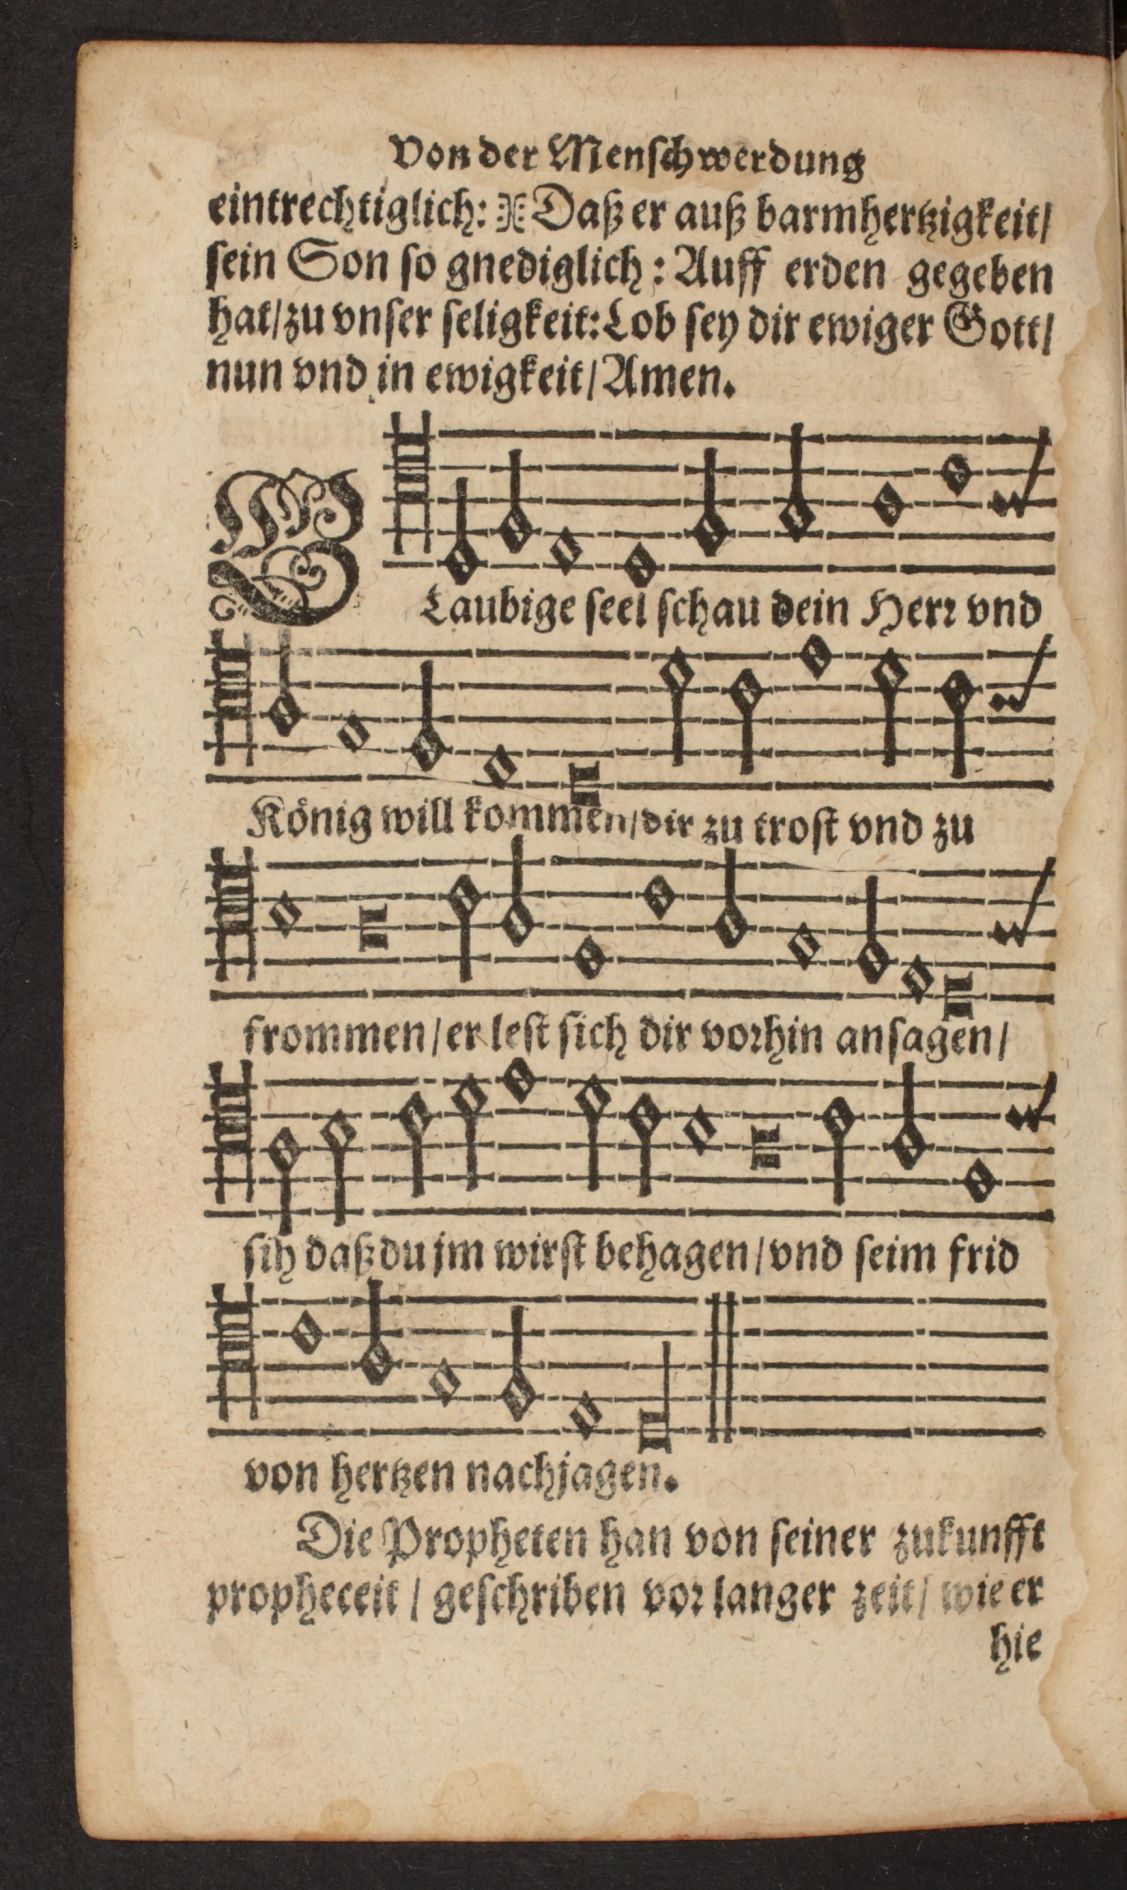 Von der Menschwerdung
eintrechtiglich: Daß er auß barmhertzigkeit/
sein Son so gnediglich: Auff erden gegeben
hat/ zu vnser seligkeit: Lob sey dir ewiger Gott/
nun vnd in ewigkeit/ Amen.
GLaubige seel schau dein Herr vnd
König will kommen/ dir zu trost vnd zu
frommen/ er lest sich dir vorhin ansagen/
sih daß du jm wirst behagen/ vnd seim frid
von hertzen nachjagen.
Die Propheten han von seiner zukunfft
propheceit / geschriben vor langer zeit/ wie er
hie